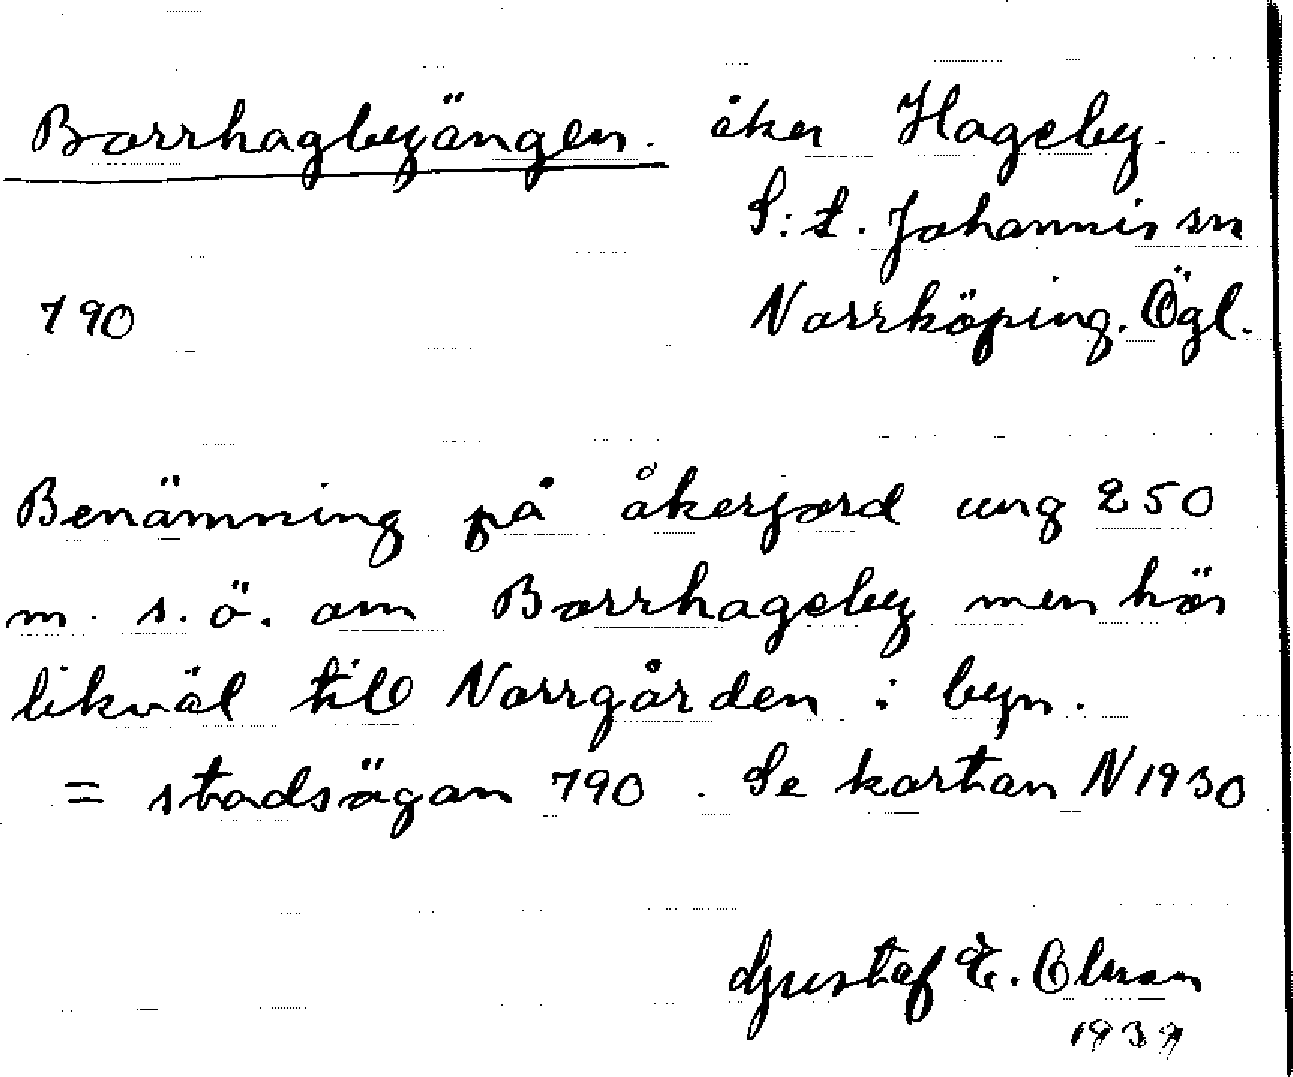 Borrhagbyängen. åker Hageby.
S:t. Johannis sn
790 Norrköping. Ögl.
Benämning på åkerjord ung 250
m. s.ö. om Borrhageby men hör
likväl till Norrgården i byn.
= stadsägan 790. Se kartan N 1930
Gustaf E. Olsson
1939